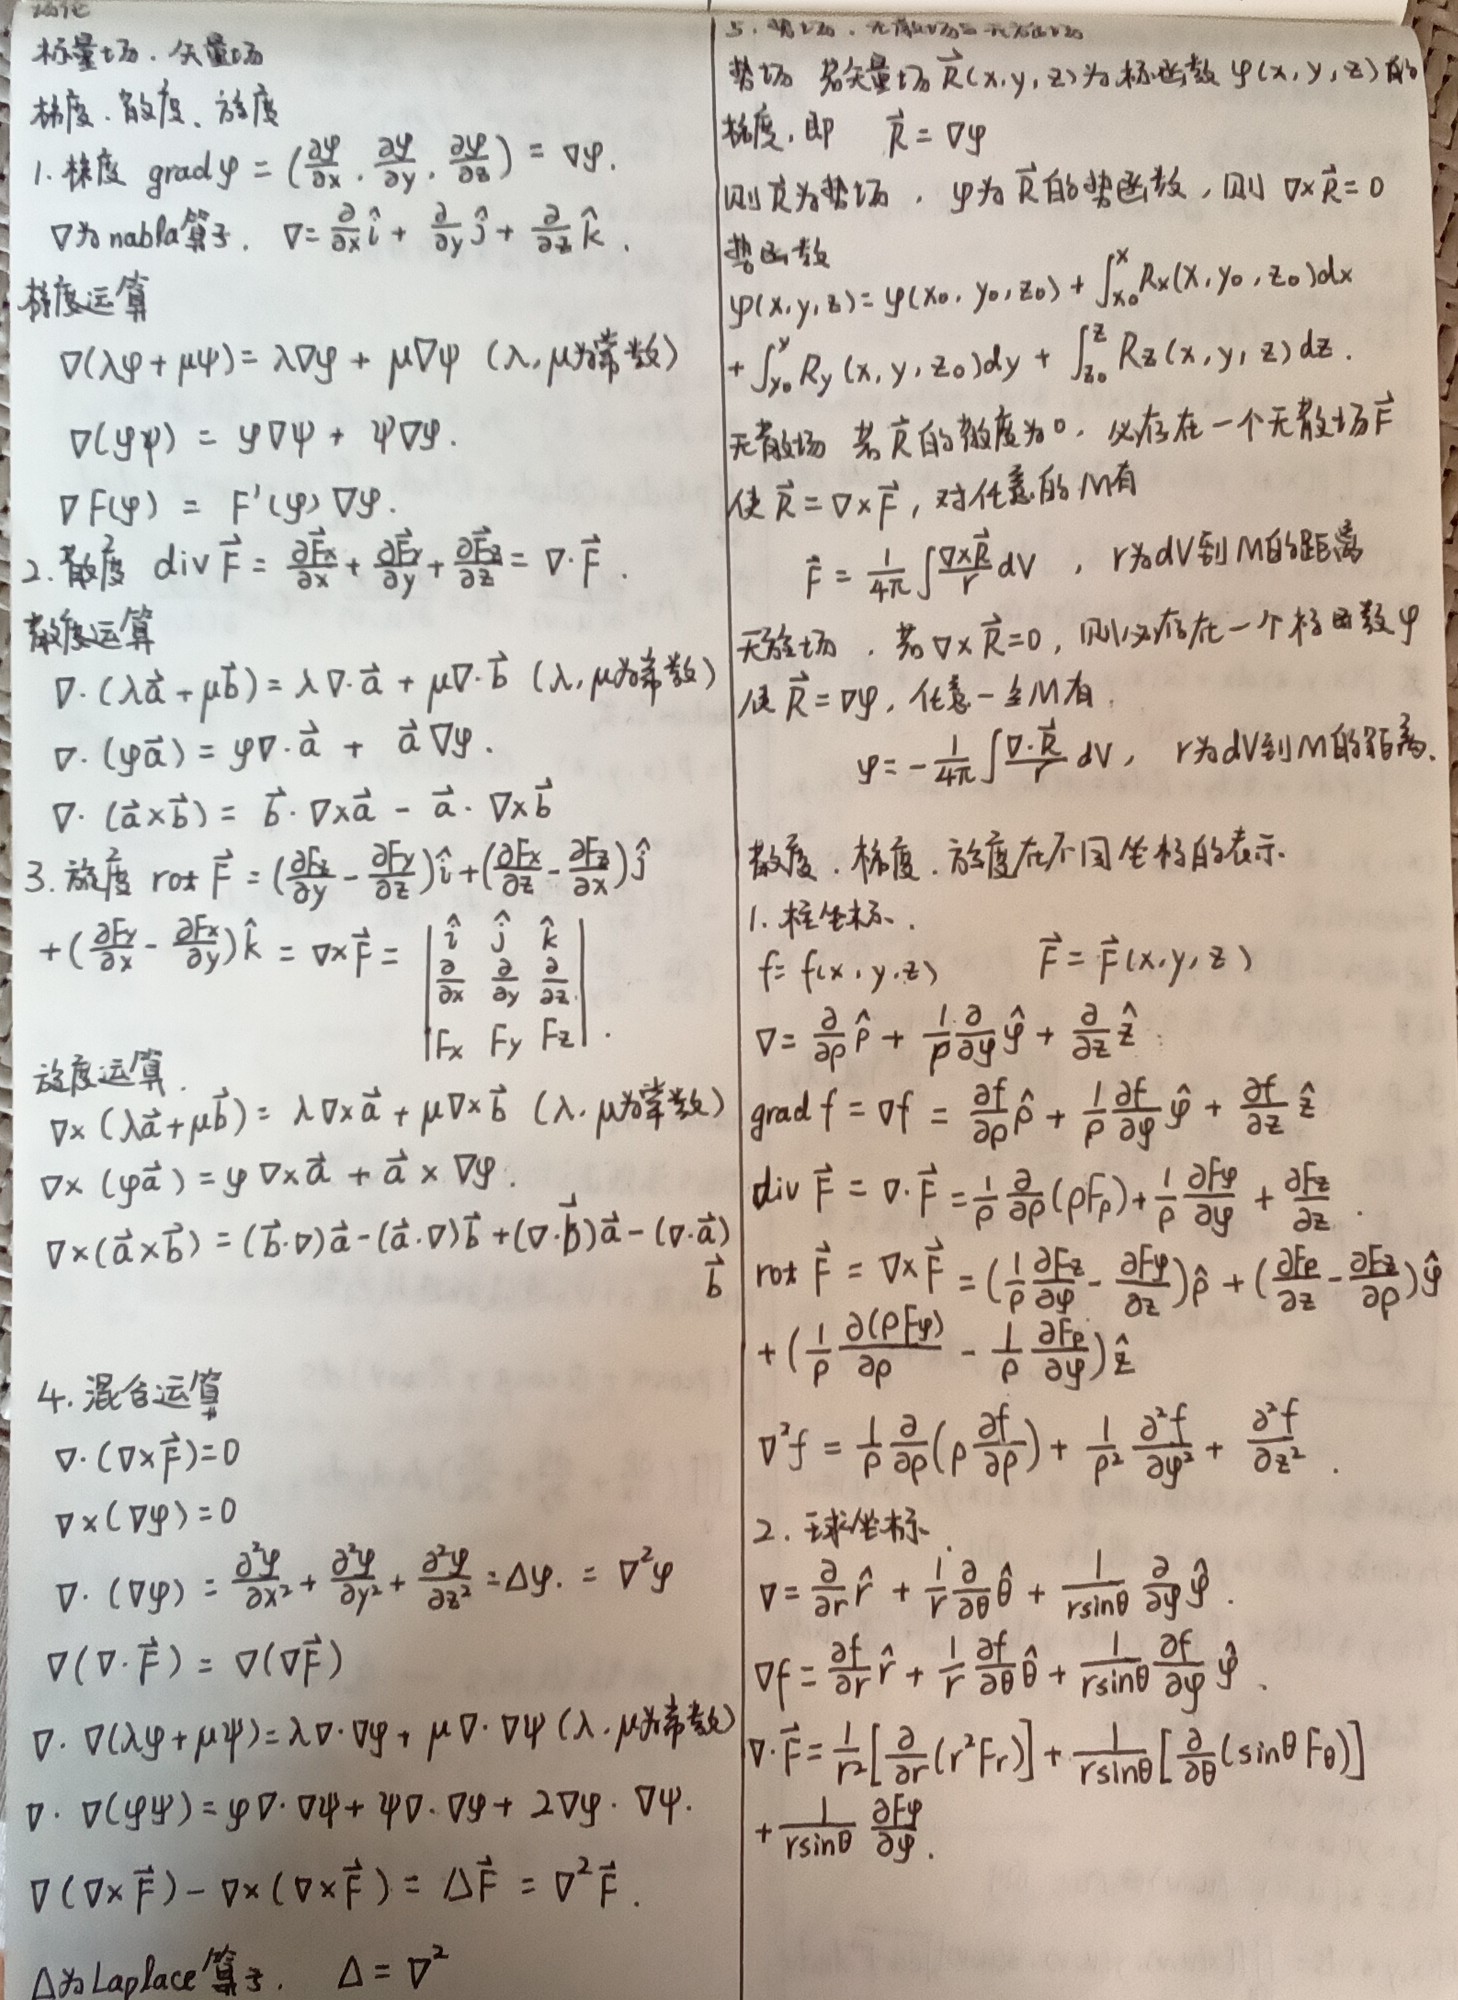 场论
标量场、矢量场
梯度、散度、旋度
1. 梯度 grad φ = (∂φ/∂x, ∂φ/∂y, ∂φ/∂z) = ∇φ.
∇为nabla算子. ∇ = ∂/∂x î + ∂/∂y ĵ + ∂/∂z k̂.
梯度运算
∇(λφ + μψ) = λ∇φ + μ∇ψ (λ, μ为常数)
∇(φψ) = φ∇ψ + ψ∇φ.
∇F(φ) = F'(φ)∇φ.
2. 散度 div F⃗ = ∂F⃗x/∂x + ∂F⃗y/∂y + ∂F⃗z/∂z = ∇·F⃗.
散度运算
∇·(λa⃗ + μb⃗) = λ∇·a⃗ + μ∇·b⃗ (λ, μ为常数)
∇·(φa⃗) = φ∇·a⃗ + a⃗∇φ.
∇·(a⃗×b⃗) = b⃗·∇×a⃗ - a⃗·∇×b⃗
3. 旋度 rot F⃗ = (∂Fz/∂y - ∂Fy/∂z)î + (∂Fx/∂z - ∂Fz/∂x)ĵ
+ (∂Fy/∂x - ∂Fx/∂y)k̂ = ∇×F⃗ = | î ĵ k̂ |
| ∂/∂x ∂/∂y ∂/∂z |
| Fx Fy Fz |.
旋度运算.
∇×(λa⃗ + μb⃗) = λ∇×a⃗ + μ∇×b⃗ (λ, μ为常数)
∇×(φa⃗) = φ∇×a⃗ + a⃗×∇φ.
∇×(a⃗×b⃗) = (b⃗·∇)a⃗ - (a⃗·∇)b⃗ + (∇·b⃗)a⃗ - (∇·a⃗)
b⃗
4. 混合运算
∇·(∇×F⃗) = 0
∇×(∇φ) = 0
∇·(∇φ) = ∂²φ/∂x² + ∂²φ/∂y² + ∂²φ/∂z² = Δφ. = ∇²φ
∇(∇·F⃗) = ∇(∇F⃗)
∇·∇(λφ + μψ) = λ∇·∇φ + μ∇·∇ψ (λ, μ为常数)
∇·∇(φψ) = φ∇·∇ψ + ψ∇·∇φ + 2∇φ·∇ψ.
∇(∇×F⃗) - ∇×(∇×F⃗) = ΔF⃗ = ∇²F⃗.
Δ为Laplace算子. Δ = ∇²
5. 势场、无散场与无旋场
势场 若矢量场R⃗(x, y, z)为标函数φ(x, y, z)的
梯度, 即 R⃗ = ∇φ
则R⃗为势场, φ为R⃗的势函数, 则 ∇×R⃗ = 0
势函数
φ(x, y, z) = φ(x₀, y₀, z₀) + ∫_{x₀}^{x} Rx(x, y₀, z₀)dx
+ ∫_{y₀}^{y} Ry(x, y, z₀)dy + ∫_{z₀}^{z} Rz(x, y, z)dz.
无散场 若R⃗的散度为0, 必存在一个无散场F⃗
使R⃗ = ∇×F⃗, 对任意的M有
F⃗ = 1/4π ∫ (∇×R⃗)/r dV, r为dV到M的距离
无旋场, 若∇×R⃗ = 0, 则必存在一个标函数φ
使R⃗ = ∇φ, 任意一点M有.
φ = -1/4π ∫ (∇·R⃗)/r dV, r为dV到M的距离.
散度、梯度、旋度在不同坐标的表示.
1. 柱坐标.
f = f(x, y, z) F⃗ = F⃗(x, y, z)
∇ = ∂/∂ρ ρ̂ + 1/ρ ∂/∂φ φ̂ + ∂/∂z ẑ
grad f = ∇f = ∂f/∂ρ ρ̂ + 1/ρ ∂f/∂φ φ̂ + ∂f/∂z ẑ
div F⃗ = ∇·F⃗ = 1/ρ ∂/∂ρ(ρFρ) + 1/ρ ∂Fφ/∂φ + ∂Fz/∂z.
rot F⃗ = ∇×F⃗ = (1/ρ ∂Fz/∂φ - ∂Fφ/∂z)ρ̂ + (∂Fρ/∂z - ∂Fz/∂ρ)φ̂
+ (1/ρ ∂(ρFφ)/∂ρ - 1/ρ ∂Fρ/∂φ)ẑ
∇²f = 1/ρ ∂/∂ρ(ρ ∂f/∂ρ) + 1/ρ² ∂²f/∂φ² + ∂²f/∂z².
2. 球坐标.
∇ = ∂/∂r r̂ + 1/r ∂/∂θ θ̂ + 1/(r sinθ) ∂/∂φ φ̂.
∇f = ∂f/∂r r̂ + 1/r ∂f/∂θ θ̂ + 1/(r sinθ) ∂f/∂φ φ̂.
∇·F⃗ = 1/r² [∂/∂r(r²Fr)] + 1/(r sinθ) [∂/∂θ(sinθ Fθ)]
+ 1/(r sinθ) ∂Fφ/∂φ.